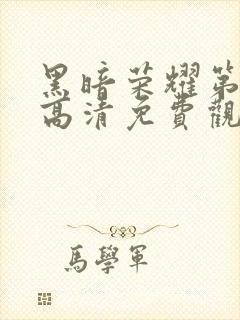 黑暗荣耀第
高清免費觀
馬學軍